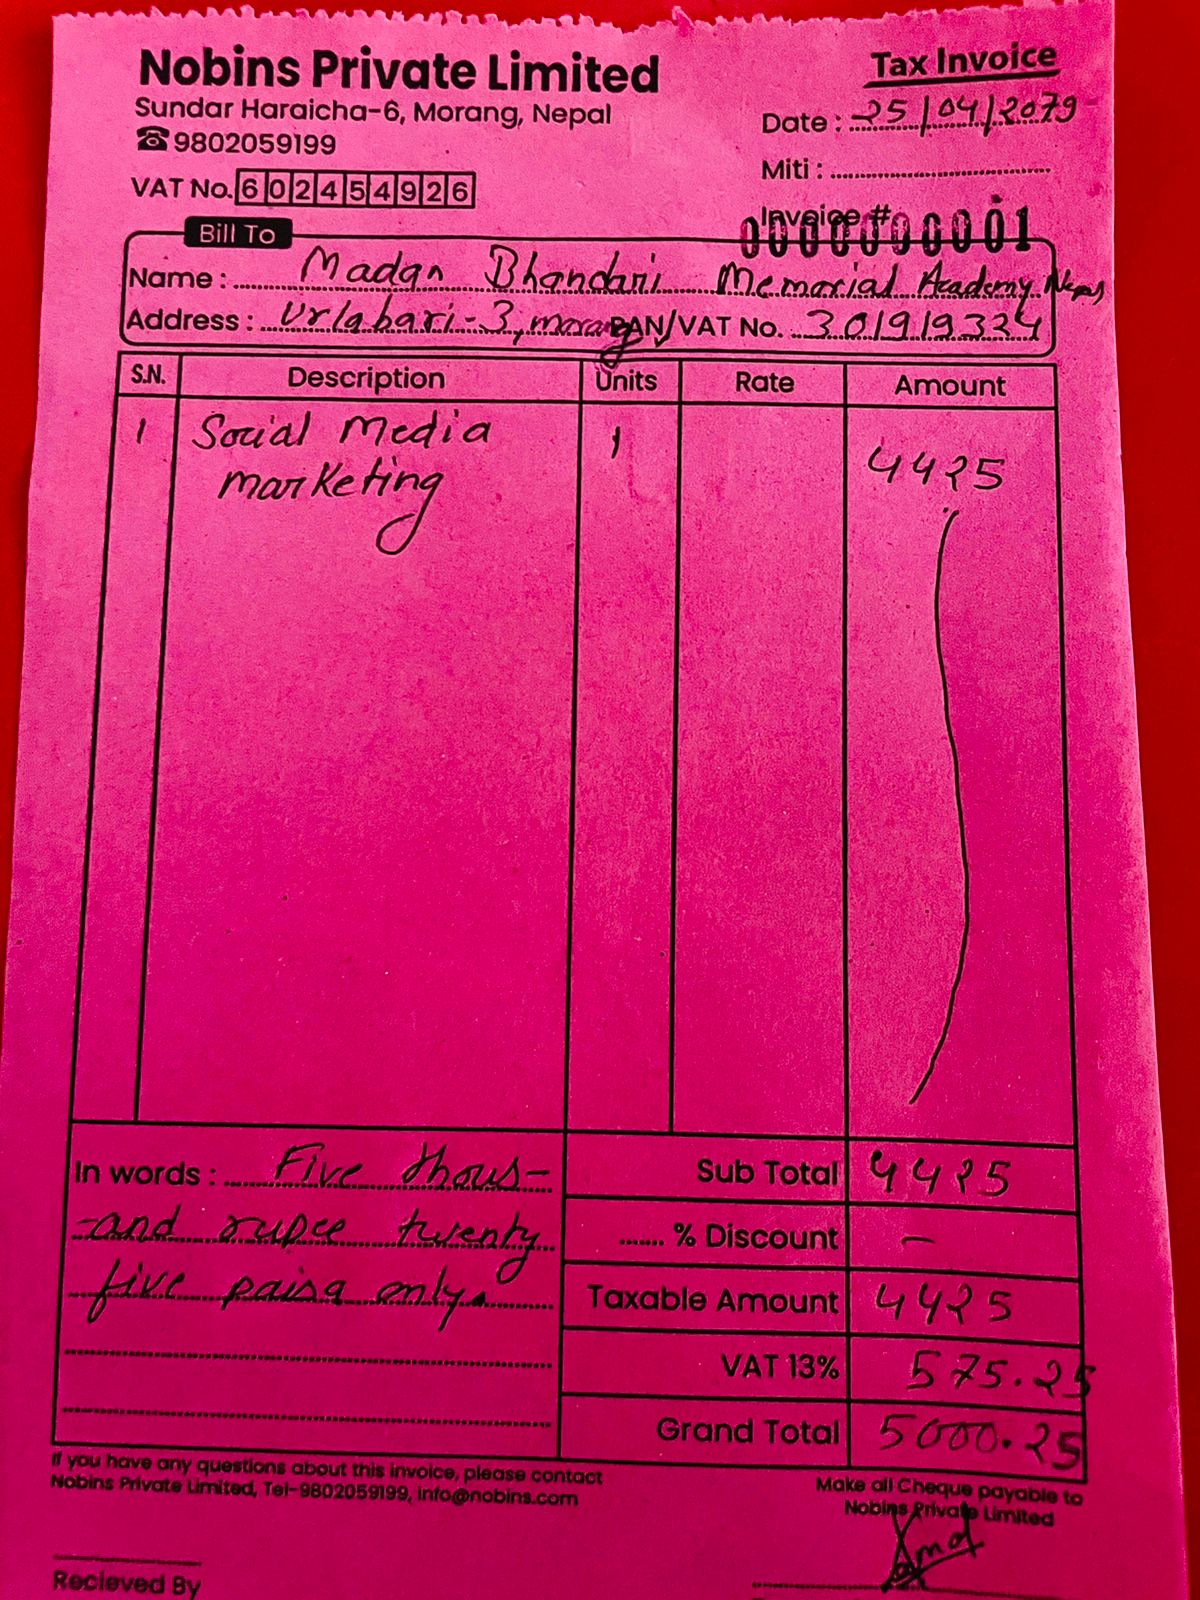 Nobins Private Limited
Tax Invoice
Sundar Haraicha-6, Morang, Nepal
Date : 25/04/2079
☎ 9802059199
Miti :
VAT No. 602454926
Invoice # 0000000001
Bill To
Name : Madan Bhandari Memorial Academy Nepal
Address : Urlabari-3, morang PAN/VAT No. 301919334
S.N. Description Units Rate Amount
1 Social Media 1 4425
marketing
In words : Five thous-
-and rupee twenty
five paisa only.
Sub Total 4425
....... % Discount –
Taxable Amount 4425
VAT 13% 575.25
Grand Total 5000.25
If you have any questions about this invoice, please contact
Nobins Private Limited, Tel-9802059199, info@nobins.com
Make all Cheque payable to
Nobins Private Limited
Recieved By